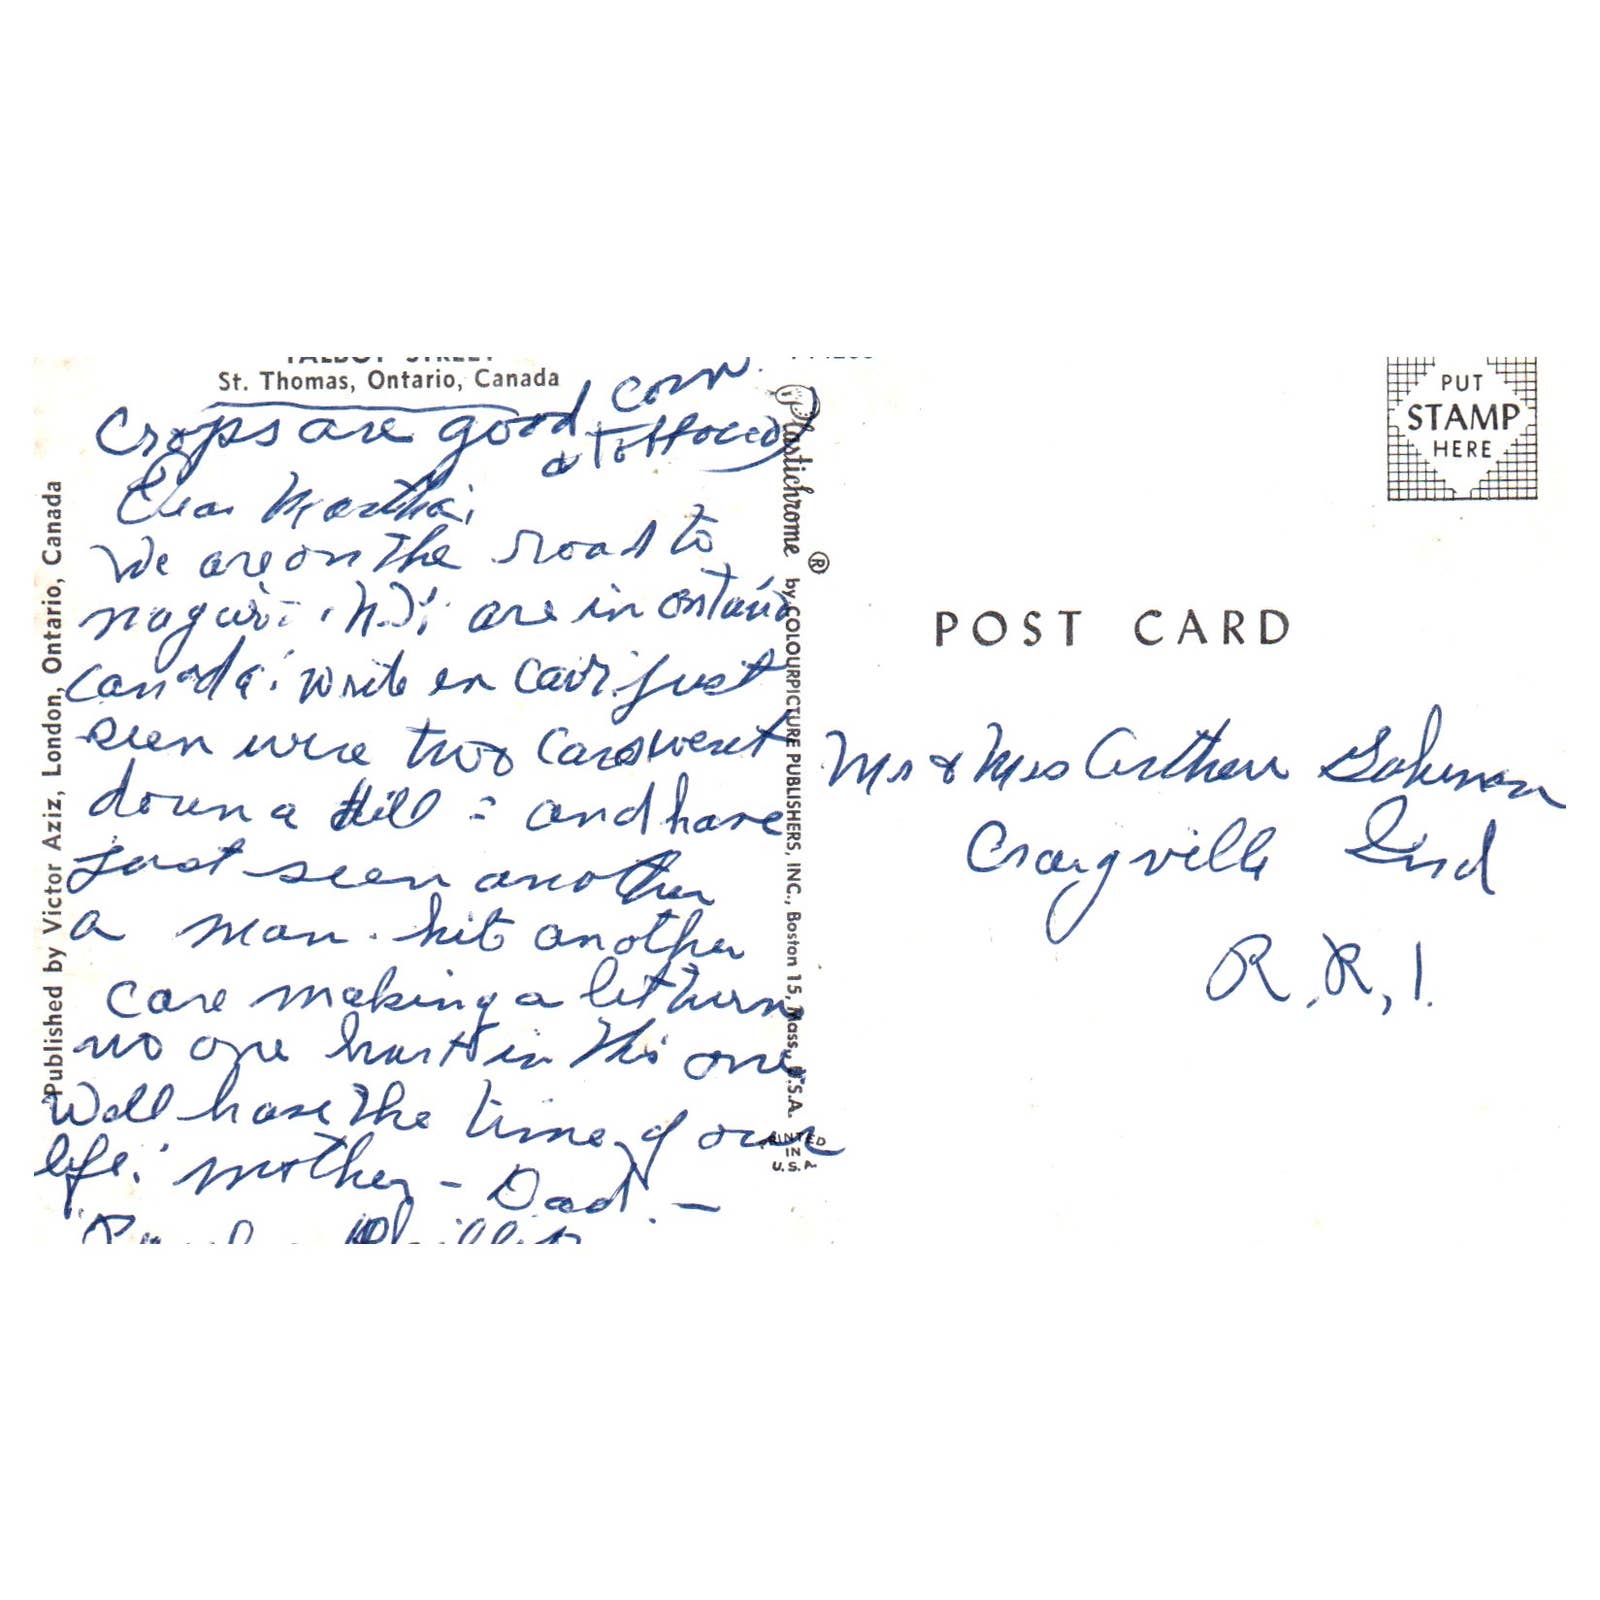 TALBOT STREET
St. Thomas, Ontario, Canada
Crops are good corn.
& Tobbacco
Dear Martha;
We are on the road to
N.Y; are in Ontario
Canada; write in car; just
seen were two cars went
down a Hill = and have
just seen another
a man. hit another
care making a left turn
no one hurt in this one
Will have the time of our
life. Mother - Dad. -
Published by Victor Aziz, London, Ontario, Canada
Plastichrome ® by COLOURPICTURE PUBLISHERS, INC., Boston 15, Mass., U.S.A.
PRINTED
IN
U.S.A.
PUT
STAMP
HERE
POST CARD
Mr & Mrs Arthur
Craigville Ind
R.R, 1.